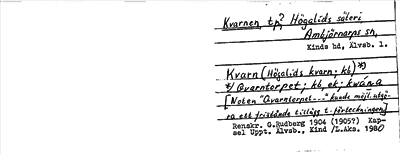 Kvarnen, tp? Högalids säteri
Ambjörnarps sn,
Kinds hd, Älvsb. l.
Kvarn (Högalids kvarn; kb) *)
*) Qvarntorpet; kb, ek; kwá:n-a
[Noten "Qvarntorpet---" kunde möjl. utgö-
ra ett fristående tillägg t. förteckningen]
Renskr. G.Rudberg 1904 (1905?) Kap-
sel Uppt. Älvsb., Kind /L.Aks. 1980